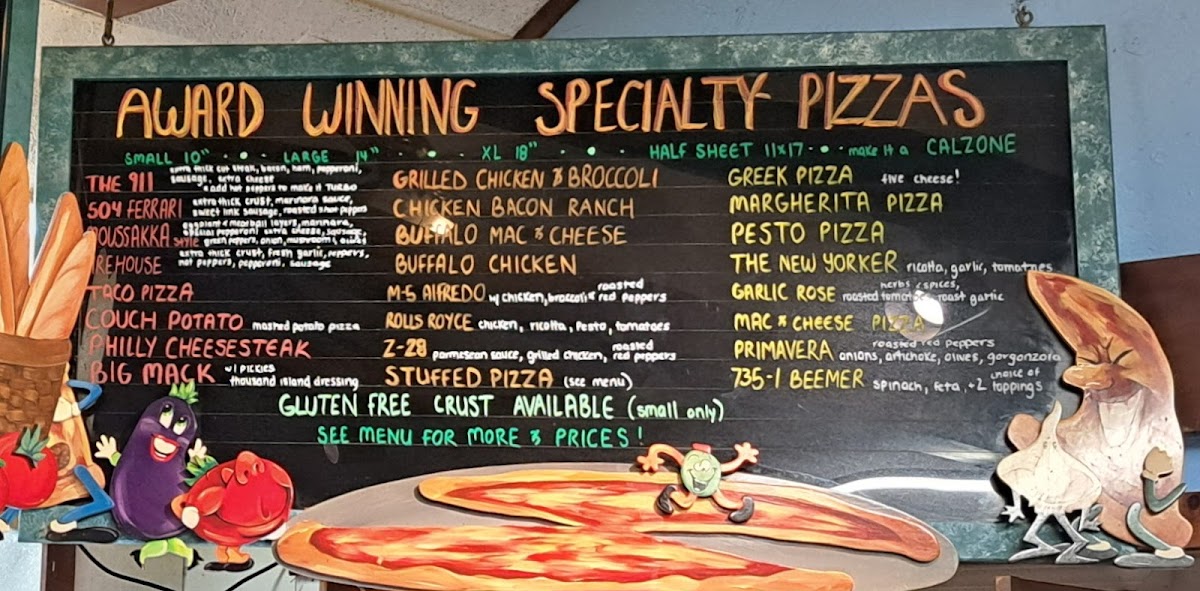 AWARD WINNING SPECIALTY PIZZAS
SMALL 10" • LARGE 14" • XL 18" • HALF SHEET 11x17 • make it a CALZONE
THE 911 extra thick cut steak, bacon, ham, pepperoni,
sausage, extra cheese
*add hot peppers to make it TURBO
504 FERRARI extra thick crust, marinara sauce,
sweet link sausage, roasted shot peppers
MOUSSAKKA STYLE eggplant & meatball layers, marinara,
special pepperoni extra cheese, sausage,
green peppers, onion, mushrooms, olives
IREHOUSE extra thick crust, fresh garlic, peppers,
hot peppers, pepperoni, sausage
TACO PIZZA
COUCH POTATO mashed potato pizza
PHILLY CHEESESTEAK
BIG MACK w/ PICKLES
thousand island dressing
GRILLED CHICKEN & BROCCOLI
CHICKEN BACON RANCH
BUFFALO MAC & CHEESE
BUFFALO CHICKEN
M-5 ALFREDO w/ chicken, broccoli & roasted
red peppers
ROLLS ROYCE chicken, ricotta, Pesto, tomatoes
Z-28 parmesan sauce, grilled chicken, roasted
red peppers
STUFFED PIZZA (see menu)
GREEK PIZZA five cheese!
MARGHERITA PIZZA
PESTO PIZZA
THE NEW YORKER ricotta, garlic, tomatoes
GARLIC ROSE herbs & spices,
roasted tomato, roast garlic
MAC & CHEESE PIZZA
PRIMAVERA roasted red peppers
onions, artichoke, olives, gorgonzola
735-I BEEMER spinach, feta, +2 choice of
toppings
GLUTEN FREE CRUST AVAILABLE (small only)
SEE MENU FOR MORE & PRICES!